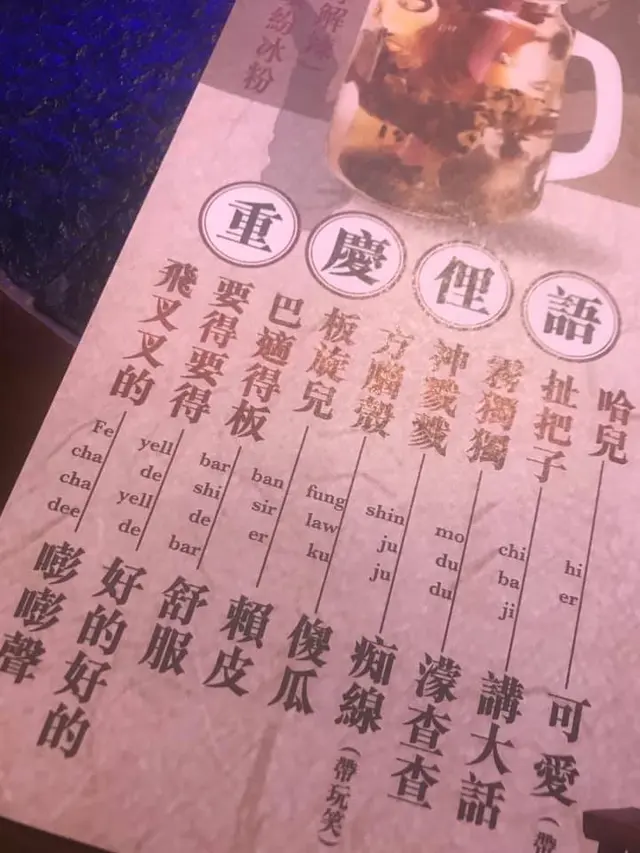 解辣）
紛冰粉
重慶俚語
哈兒 hi er 可愛（帶
扯把子 chi ba ji 講大話
霧獨獨 mo du du 濛查查
神戳戳 shin ju ju 痴線（帶玩笑）
方腦殼 fung law ku 傻瓜
板旋兒 ban sir er 賴皮
巴適得板 bar shi de bar 舒服
要得要得 yell de yell de 好的好的
飛叉叉的 Fe cha cha dee 嘭嘭聲